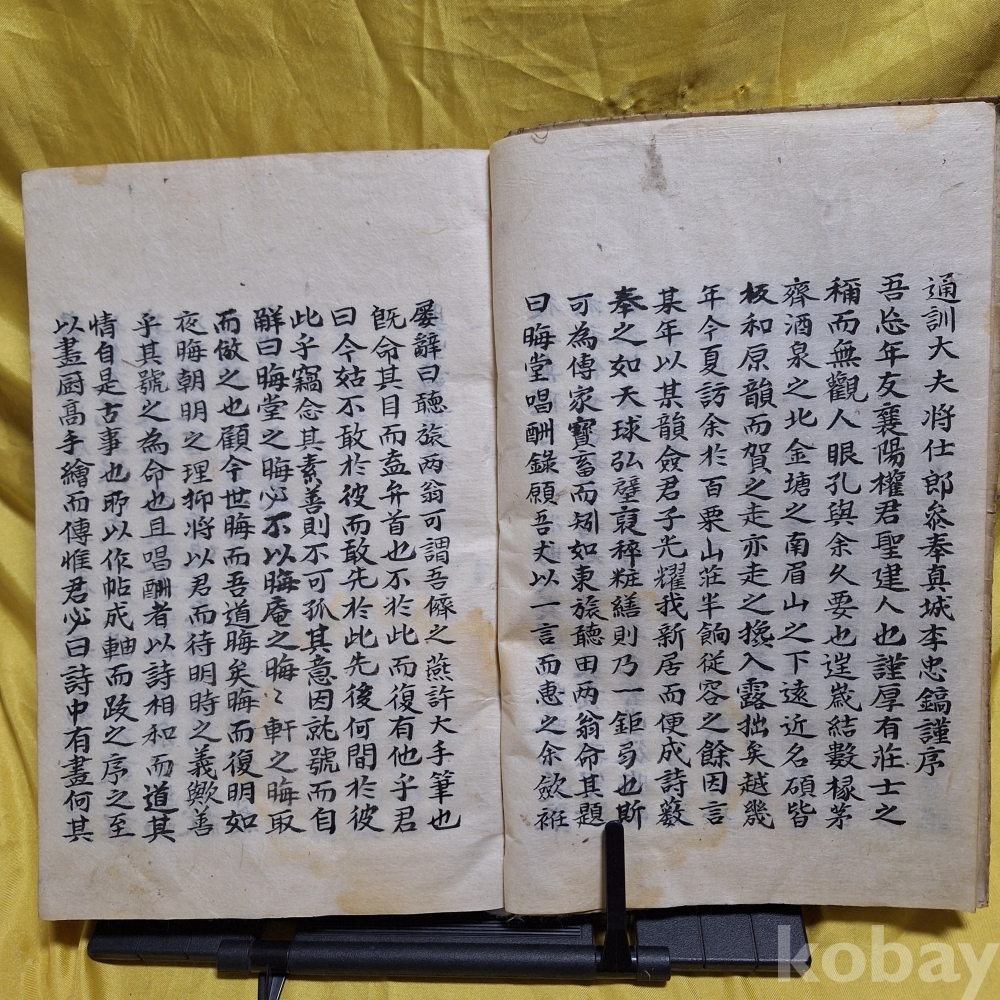 通訓大夫將仕郎叅奉真城李忠鎬謹序
吾忘年友襄陽權君聖建人也謹厚有莊士之
稱而無觀人眼孔與余久要也逞歲結數椽茅
齊酒泉之北金塘之南眉山之下遠近名碩皆
板和原韻而賀之走亦走之攙入露拙矣越幾
年今夏訪余於百栗山莊半餉從容之餘因言
某年以某韻僉君子光耀我新居而便成詩藪
奉之如天球弘璧裒稡粧繕則乃一鉅弓也斯
可為傳家寶畜而矧如東旅聽田两翁命其題
曰晦堂唱酬錄願吾丈以一言而惠之余歛袵
屡辭曰聽旅两翁可謂吾儕之燕許大手筆也
旣命其目而盍弁首也不於此而復有他乎君
曰今姑不敢於彼而敢先於此先後何間於彼
此乎竊念其素善則不可孤其意因就號而自
觧曰晦堂之晦必不以晦庵之晦〻軒之晦取
而倣之也顧今世晦而吾道晦矣晦而復明如
夜晦朝明之理抑將以君而待明時之義歟善
乎其號之為命也且唱酬者以詩相和而道其
情自是古事也耶以作帖成軸而跋之序之至
以畫厨高手繪而傳惟君必曰詩中有畫何其
kobay